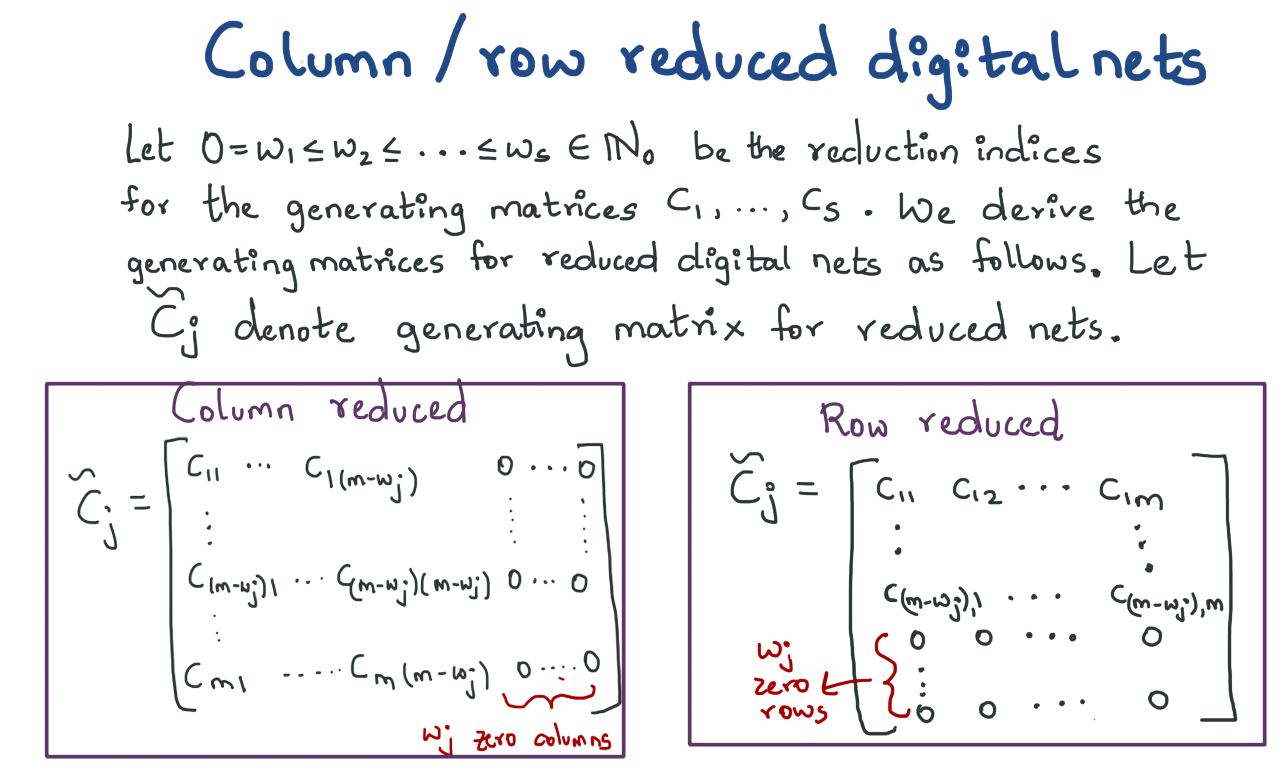 Column / row reduced digital nets
Let 0 = w₁ ≤ w₂ ≤ ... ≤ wₛ ∈ ℕ₀ be the reduction indices
for the generating matrices C₁, ..., Cₛ. We derive the
generating matrices for reduced digital nets as follows. Let
C̃ⱼ denote generating matrix for reduced nets.
Column reduced
C̃ⱼ = [ C₁₁ ... C₁₍ₘ₋wⱼ₎ 0 ... 0
⋮ ⋮ ⋮
C₍ₘ₋wⱼ₎₁ ... C₍ₘ₋wⱼ₎₍ₘ₋wⱼ₎ 0 ... 0
⋮
Cₘ₁ ..... Cₘ₍ₘ₋wⱼ₎ 0 .... 0 ]
wⱼ zero columns
Row reduced
C̃ⱼ = [ C₁₁ C₁₂ ... C₁ₘ
⋮ ⋮
C₍ₘ₋wⱼ₎,₁ ... C₍ₘ₋wⱼ₎,ₘ
0 0 ... 0
⋮
0 0 ... 0 ]
wⱼ
zero
rows